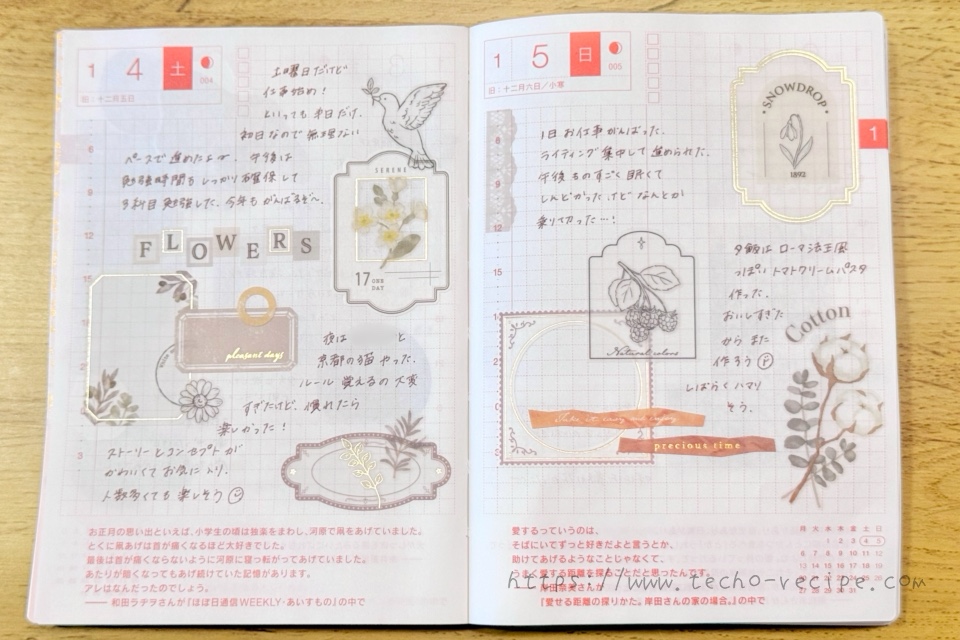 1 4 土
004
旧:十二月五日
土曜日だけど
仕事始め!
といっても半日だけ。
初日なので無理ない
ペースで進めたよ〜。午後は
勉強時間もしっかり確保して
3科目勉強した。今年もがんばるぞ〜。
SERENE
17 ONE DAY
FLOWERS
pleasant days
夜は と
京都の猫やった。
ルール覚えるの大変
すぎたけど、慣れたら
楽しかった!
ストーリーとコンセプトが
かわいくてお気に入り。
人数多くても楽しそう
6
9
12
15
18
3
お正月の思い出といえば、小学生の頃は独楽をまわし、河原で凧をあげていました。
とくに凧あげは首が痛くなるほど大好きでした。
最後は首が痛くならないように河原に寝っ転がってあげていました。
あたりが暗くなってもあげ続けていた記憶があります。
アレはなんだったのでしょう。
—— 和田ラヂヲさんが『ほぼ日通信WEEKLY・あいすもの』の中で
1 5 日
005
旧:十二月六日/小寒
1
1日お仕事がんばった。
ライティング集中して進められた。
午後ものすごく眠くて
しんどかったけどなんとか
乗り切った…!
SNOWDROP
1892
夕飯はローマ法王風
っぽいトマトクリームパスタ
作った。
おいしすぎた
からまた
作ろう
しばらくハマり
そう。
Natural colors
Take it easy and enjoy
precious time
Cotton
6
9
12
15
18
3
愛するっていうのは、
そばにいてずっと好きだよと言うとか、
助けてあげるようなことじゃなくて、
うまく愛せる距離を探ることだと思ったんです。
—— 岸田奈美さんが
『愛せる距離の探りかた。岸田さんの家の場合。』の中で
月 火 水 木 金 土 日
1 2 3 4 5
6 7 8 9 10 11 12
13 14 15 16 17 18 19
20 21 22 23 24 25 26
27 28 29 30 31
https://www.techo-recipe.com